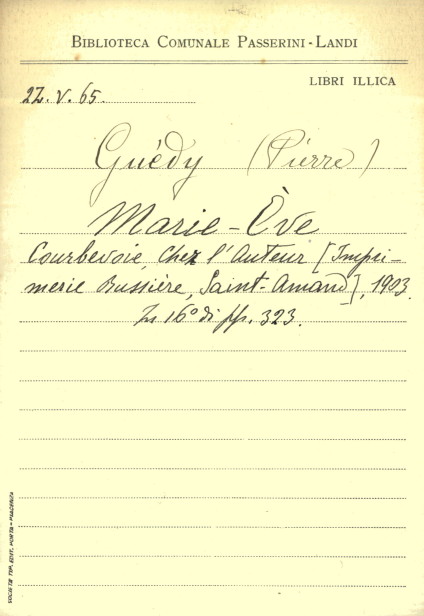 BIBLIOTECA COMUNALE PASSERINI-LANDI
LIBRI ILLICA
22.V.65.
Guédy (Pierre)
Marie-Ève
Courbevoie, Chez l'Auteur [Impri-
merie Bussière, Saint-Amand], 1903.
In 16° di pp. 323.
SOCIETÀ TIP. EDIT. PORTA - PIACENZA